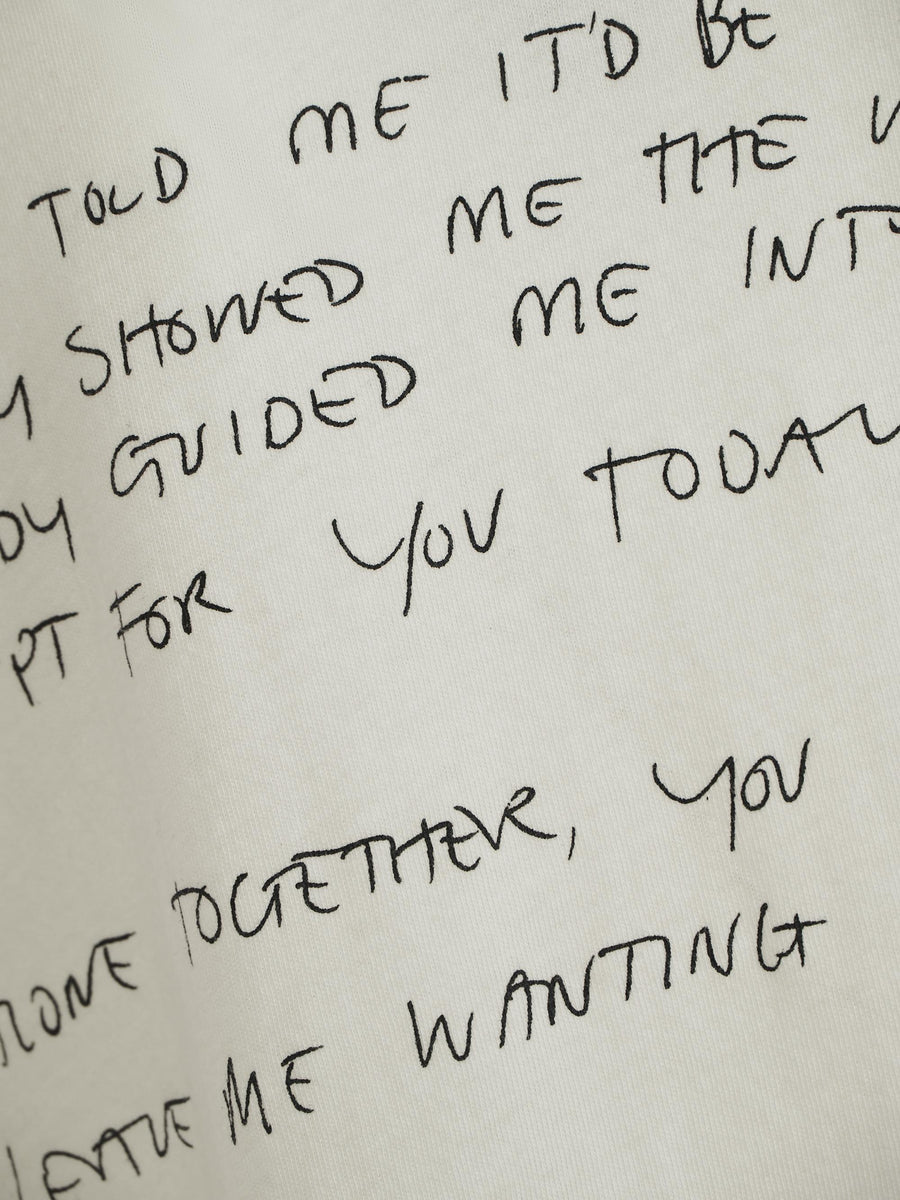 TOLD ME IT'D BE
SHOWED ME THE
GUIDED ME INTO
FOR YOU TODAY
TOGETHER, YOU
LEAVE ME WANTING